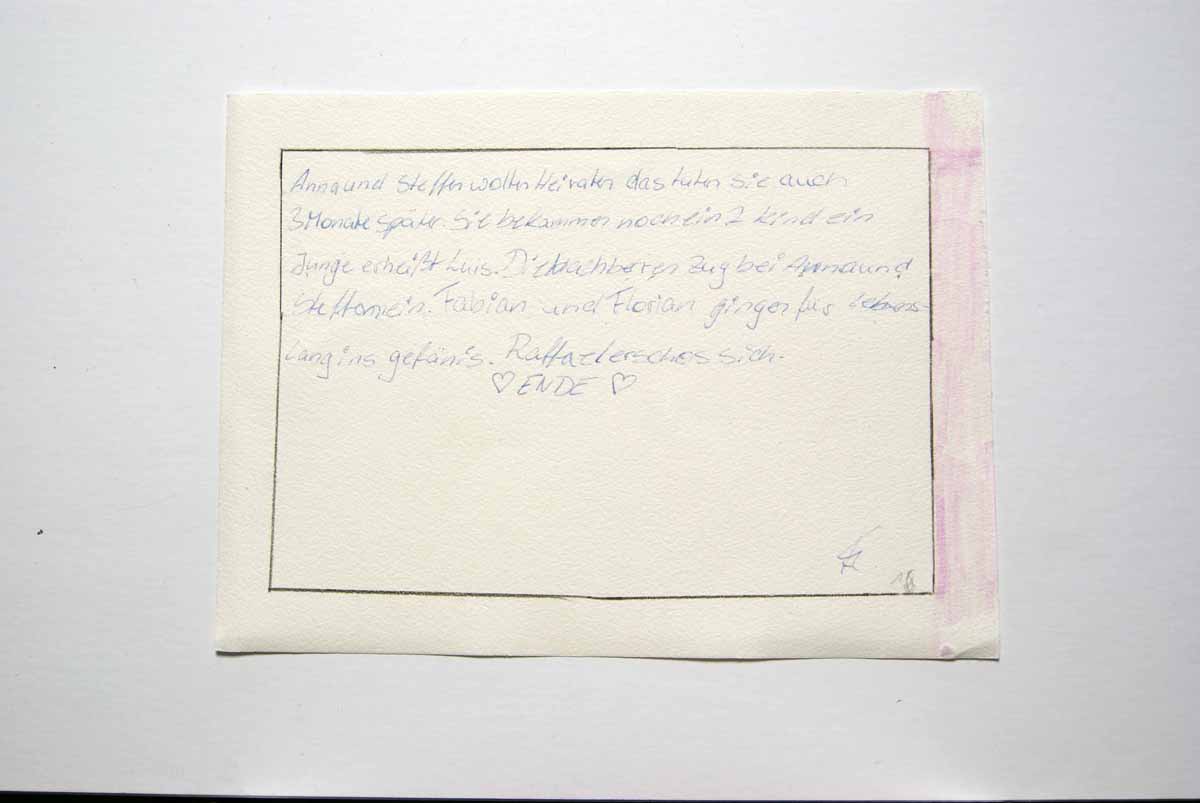 Anna und Steffen wolten Heiraten das tuten sie auch
3 Monate später. Sie bekammen noch ein 2 kind ein
Junge er heißt Luis. Die zug bei Anna und
ein. Fabian und Florian gingen für Lebens-
lang ins gefänis. Raffael erschos sich.
♡ ENDE ♡